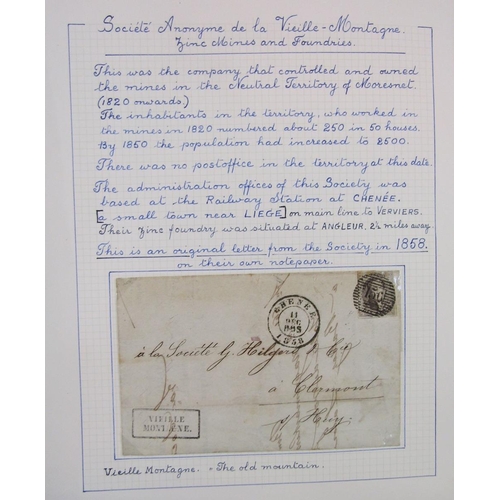 Société Anonyme de la Vieille-Montagne.
Zinc Mines and Foundries.
This was the company that controlled and owned
the mines in the Neutral Territory of Moresnet.
(1820 onwards)
The inhabitants in the territory, who worked in
the mines in 1820 numbered about 250 in 50 houses.
By 1850 the population had increased to 2500.
There was no postoffice in the territory at this date.
The administration offices of this Society was
based at the Railway Station at CHENÉE.
[a small town near LIEGE] on main line to VERVIERS.
Their Zinc foundry was situated at ANGLEUR. 2¼ miles away
This is an original letter from the Society in 1858.
on their own notepaper.
CHENEE
11
DEC
1858
à la Société G. Hilgers & Cie
à Clermont
s/ Huy
VIEILLE
MONTAGNE.
Vieille Montagne. = The old mountain.